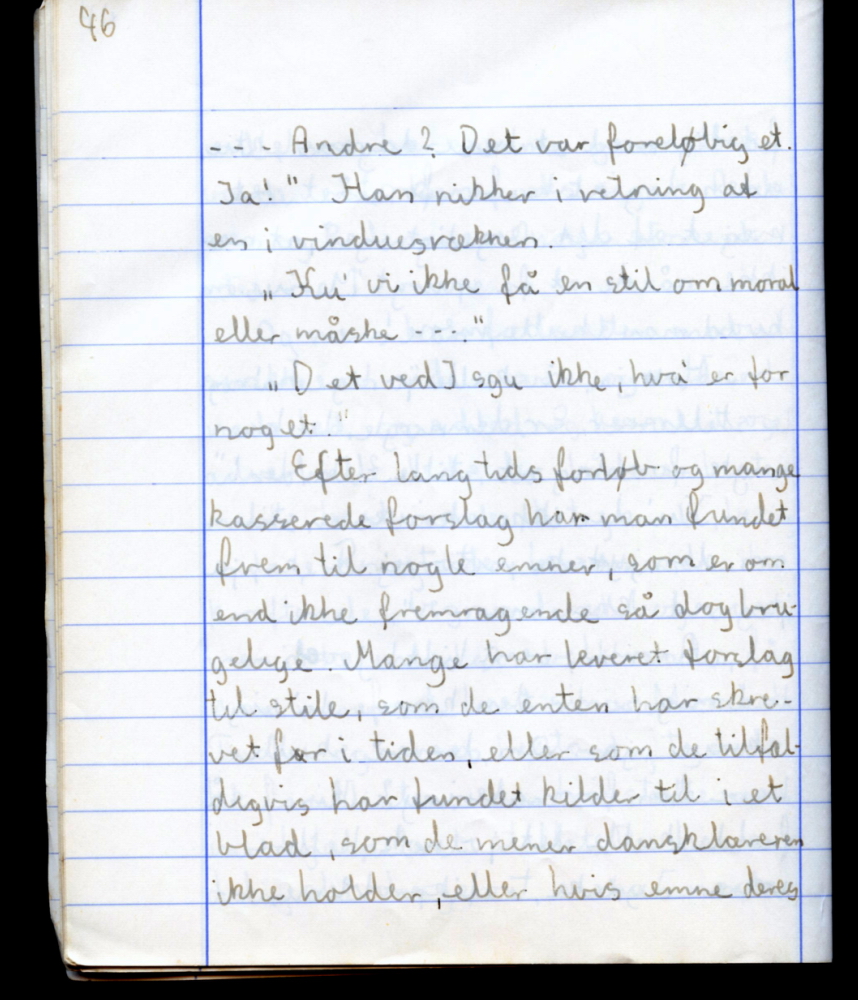 46
- - - Andre? Det var foreløbig et.
Ja!" Han nikker i retning af
en i vinduesrækken.
„Ku' vi ikke få en stil om moral
eller måske ..."
„Det ved I sgu ikke, hva' er for
noget."
Efter lang tids forløb og mange
kasserede forslag har man fundet
frem til nogle emner, som er om
end ikke fremragende så dog bru-
gelige. Mange har leveret forslag
til stile, som de enten har skre-
vet før i tiden, eller som de tilfæl-
digvis har fundet kilder til i et
blad, som de mener dansklæreren
ikke holder, eller hvis emne deres